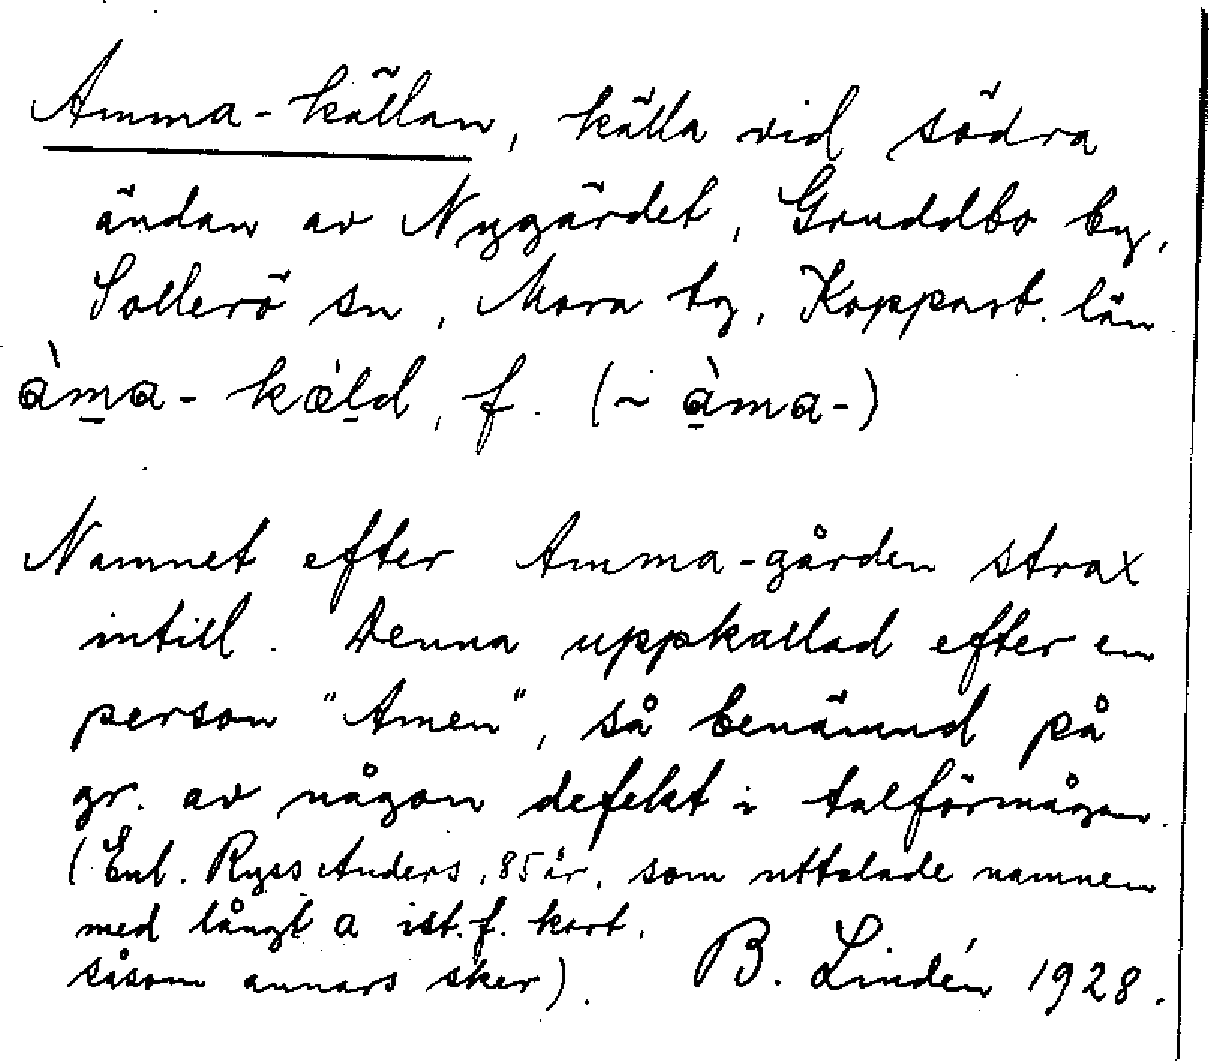 Amma-källan, källa vid södra
ändan av Nygärdet, Gruddbo by,
Sollerö sn, Mora tg, Kopparb. län
àma- kæ̀ld, f. (~ àma-)
Namnet efter Amma-gården strax
intill. Denna uppkallad efter en
person "Amen", så benämnd på
gr. av någon defekt i talförmågan.
(Enl. Ryss Anders, 85 år, som uttalade namnen
med långt a ist. f. kort,
såsom annars sker). B. Lindén 1928.